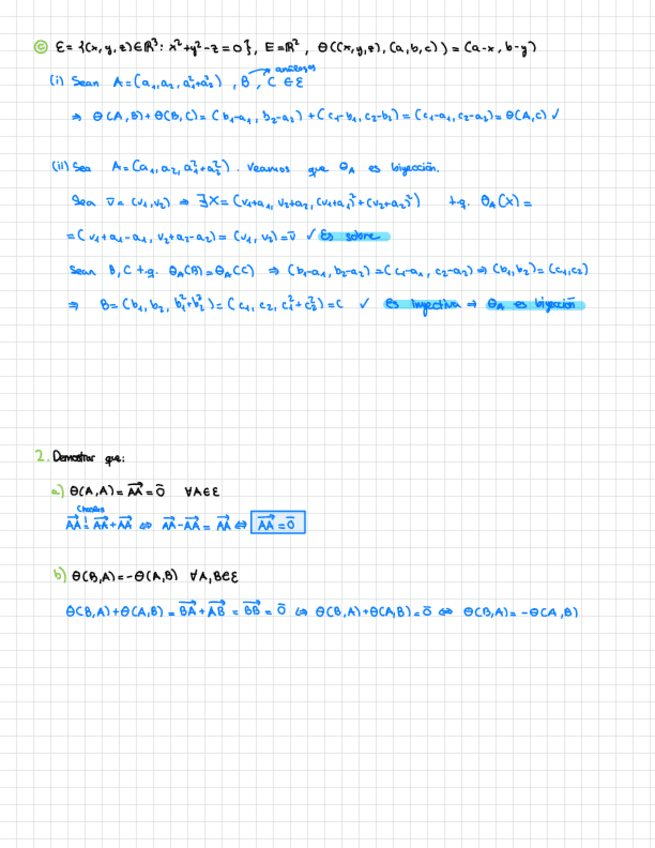 c) ℰ = {(x,y,z)∈ℝ³: x²+y²-z=0}, E=ℝ², Θ((x,y,z),(a,b,c)) = (a-x, b-y)
análogos
(i) Sean A=(a₁,a₂,a₁²+a₂²), B, C ∈ ℰ
⇒ Θ(A,B)+Θ(B,C) = (b₁-a₁, b₂-a₂)+(c₁-b₁, c₂-b₂) = (c₁-a₁, c₂-a₂) = Θ(A,C) ✓
(ii) Sea A=(a₁,a₂,a₁²+a₂²). Veamos que Θ_A es biyección.
Sea v̄=(v₁,v₂) ⇒ ∃X=(v₁+a₁, v₂+a₂, (v₁+a₁)²+(v₂+a₂)²) t.q. Θ_A(X) =
=(v₁+a₁-a₁, v₂+a₂-a₂) = (v₁,v₂) = v̄ ✓ Es sobre
Sean B,C t.q. Θ_A(B)=Θ_A(C) ⇒ (b₁-a₁, b₂-a₂)=(c₁-a₁, c₂-a₂) ⇒ (b₁,b₂)=(c₁,c₂)
⇒ B=(b₁, b₂, b₁²+b₂²)=(c₁, c₂, c₁²+c₂²)=C ✓ Es inyectiva ⇒ Θ_A es biyección
2. Demostrar que:
a) Θ(A,A)=AA⃗=0̄ ∀A∈ℰ
Chasles
AA⃗ = AA⃗+AA⃗ ⇔ AA⃗-AA⃗ = AA⃗ ⇔ AA⃗=0̄
b) Θ(B,A)=-Θ(A,B) ∀A,B∈ℰ
Θ(B,A)+Θ(A,B) = BA⃗+AB⃗ = BB⃗ = 0̄ ⇔ Θ(B,A)+Θ(A,B)=0̄ ⇔ Θ(B,A)=-Θ(A,B)